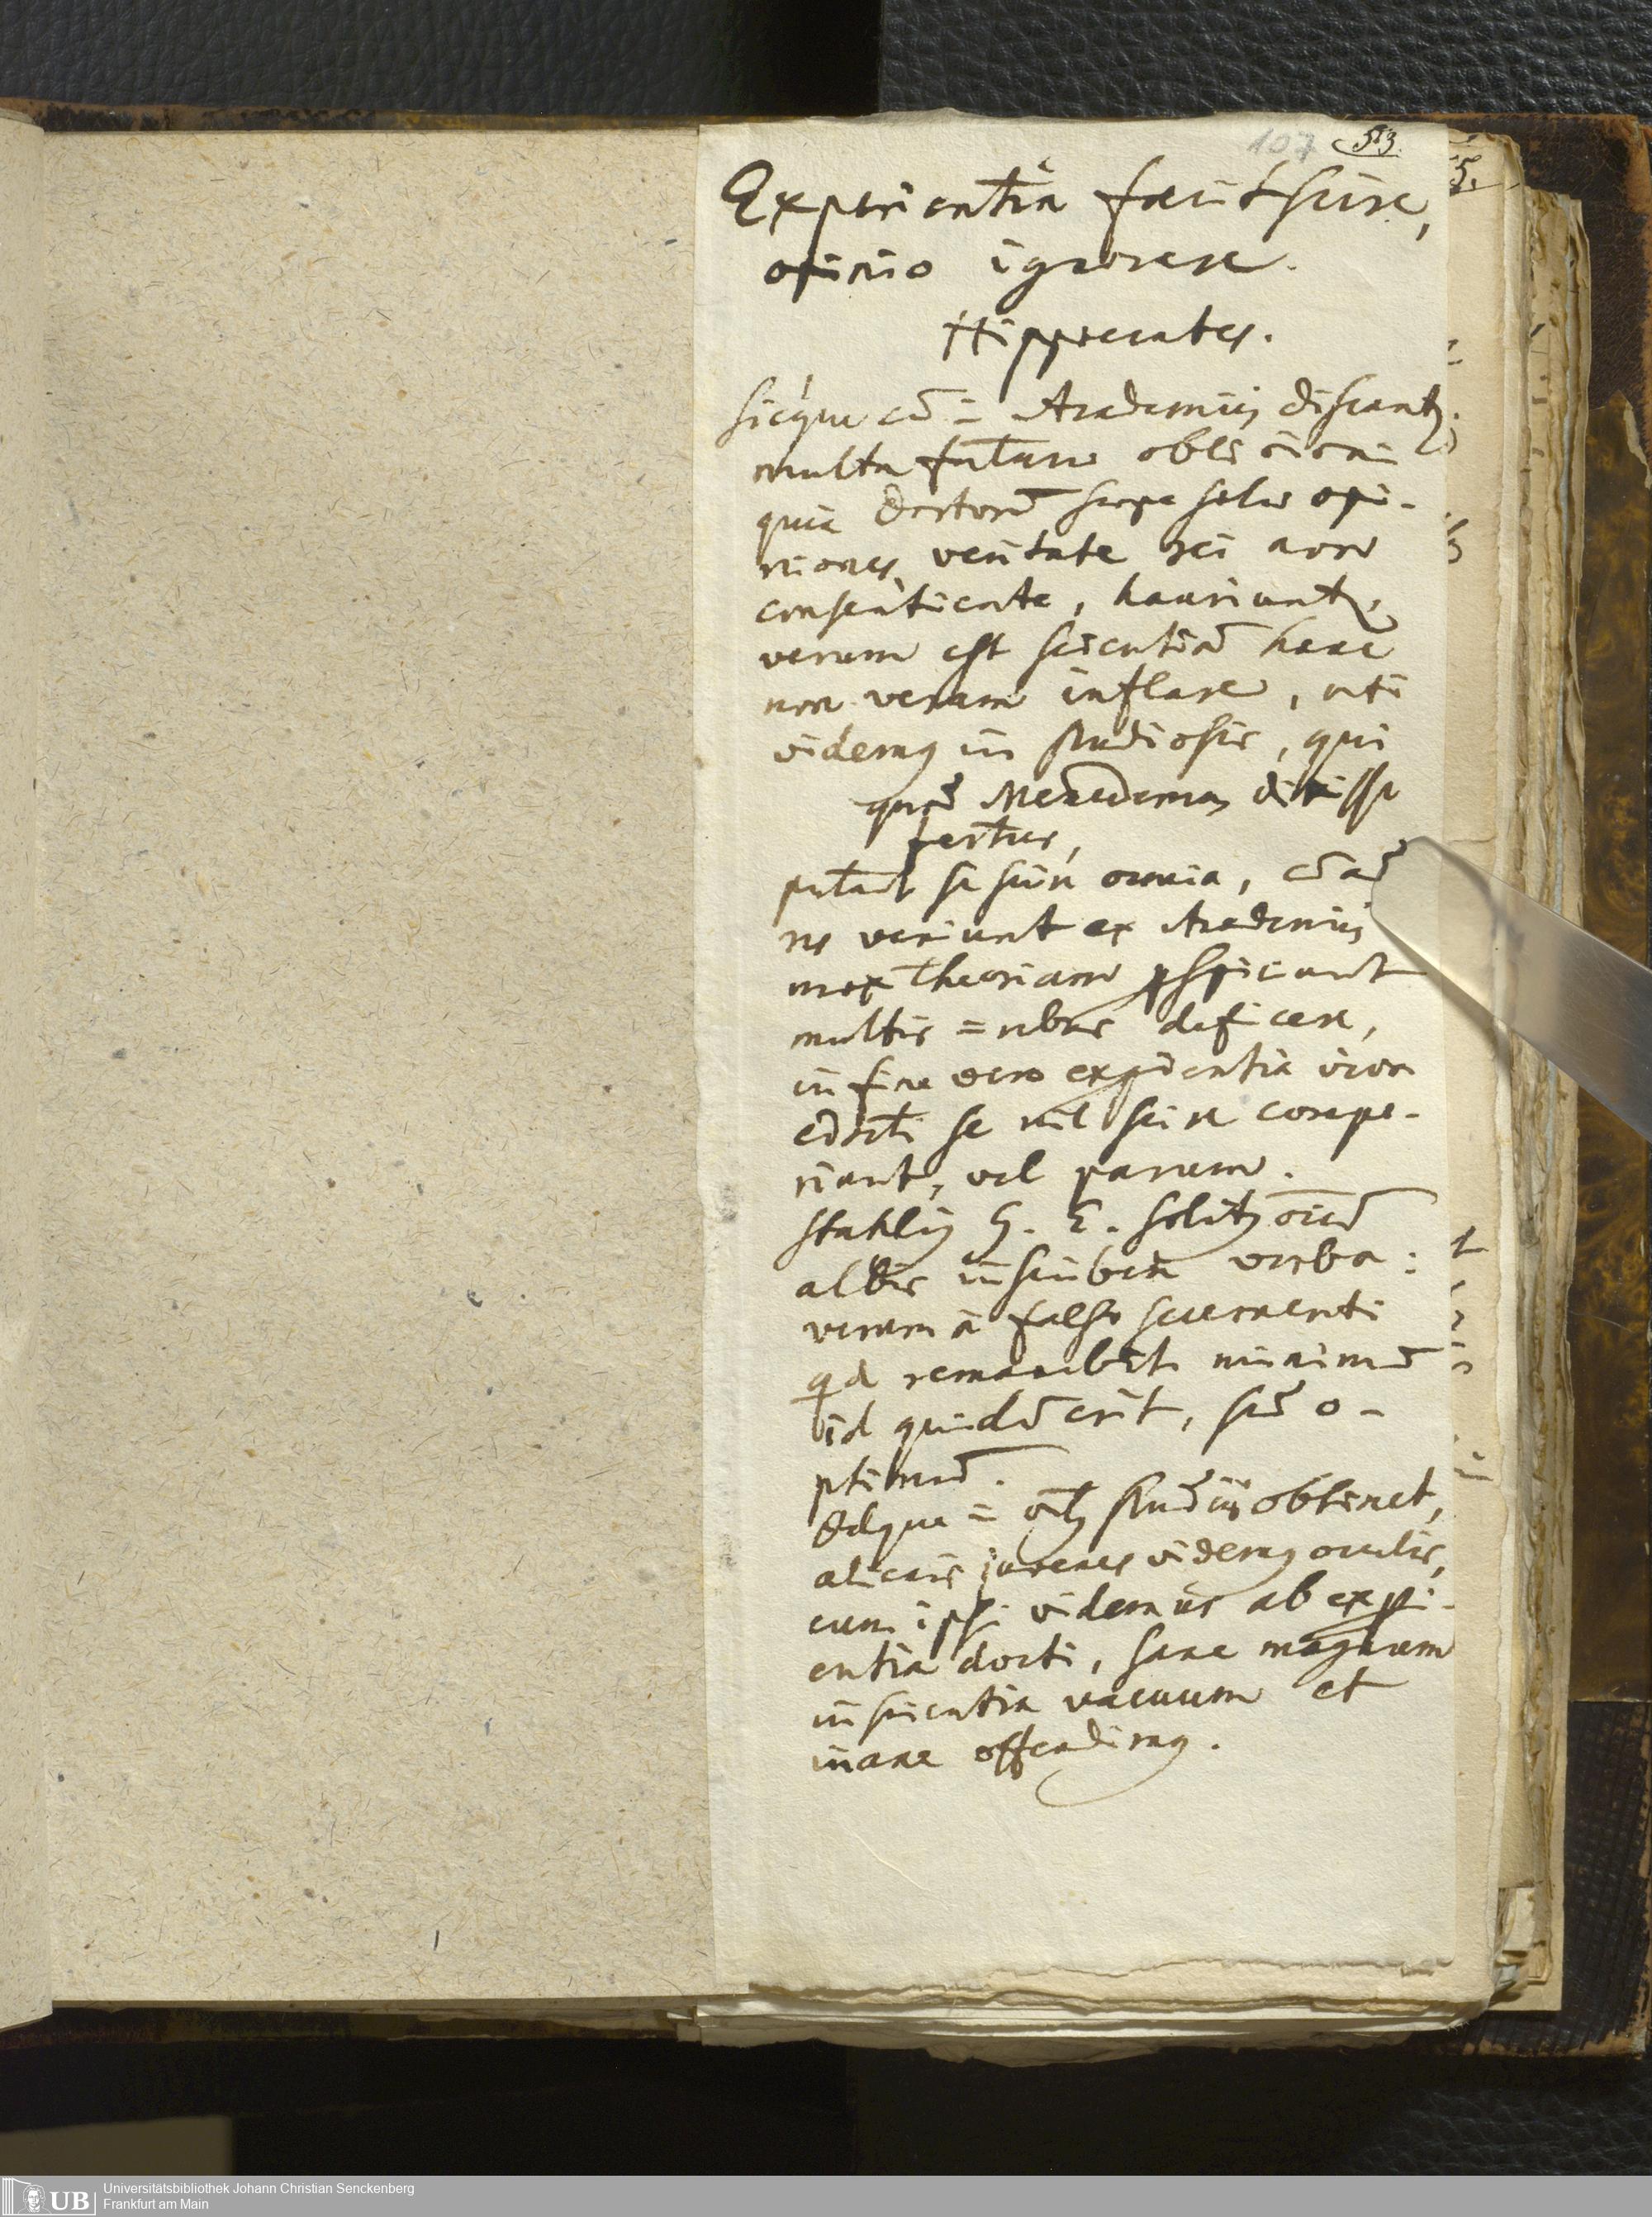 107 53.
Experientia facit scire,
opinio ignorare.
Hippocrates.
sicque cū = Academiis discantʒ
multa futura oblivioni
quia Doctorū saepe solū opi-
niones, veritate rei non
consentiente, hauriuntʒ,
verum est scientiā hanc
non veram inflare, uti
videmꝰ in studiosis, qui
quod Menedemus dixisse
fertur,
putant se scire omnia, cū
veniunt ex Academiis
mox theoriam ꝑspiciunt
multis = rebus deficere,
in fine vero exꝑientia viva
edocti se nil scire compe-
riant, vel parum.
Stahliꝰ G. E. solitꝰ
albis inscribere verba:
verum à falso secernenti
qd remanebit minimū
id quidē erit, sed o-
ptimū.
Idque = studiis obtinet,
alienis juvenes videmꝰ oculis,
cum ipsi videmus ab exꝑi-
entia docti, sane magnum
in scientia vacuum et
inane offendimꝰ.
Universitätsbibliothek Johann Christian Senckenberg
Frankfurt am Main
UB